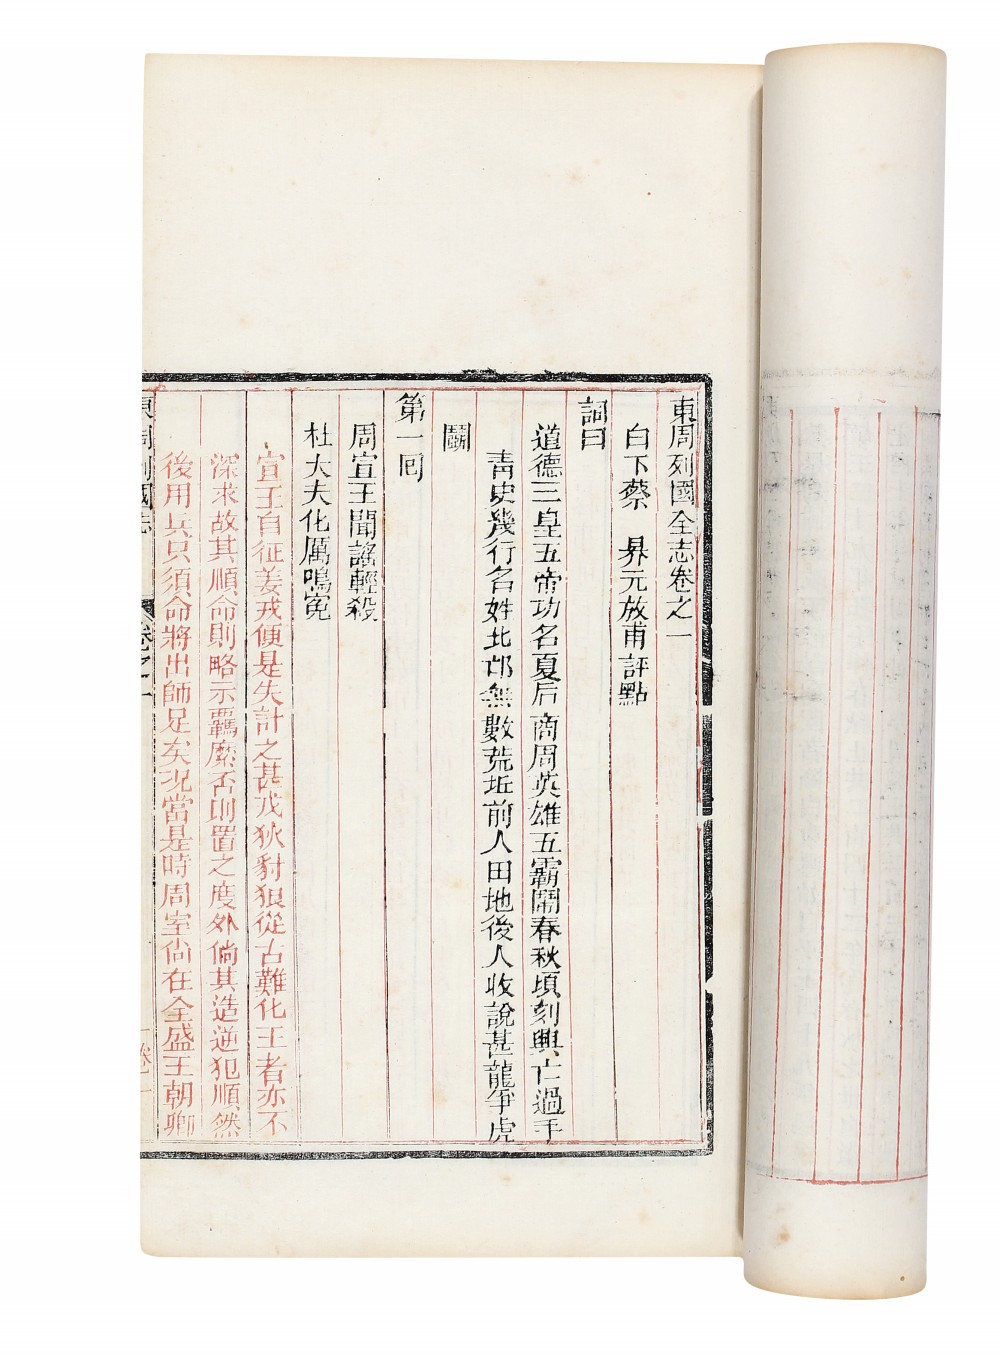 東周列國全志卷之一
白下蔡　昦元放甫評點
詞曰
道德三皇五帝功名夏后商周英雄五霸鬧春秋頃刻興亡過手
青史幾行名姓北邙無數荒坵前人田地後人收說甚龍爭虎
鬭
第一回
周宣王聞謠輕殺
杜大夫化厲鳴冤
宣王自征姜戎便是失計之甚戎狄豺狼從古難化王者亦不
深求故其順命則略示羈縻否則置之度外倘其造逆犯順然
後用兵只須命將出師足矣況當是時周室尚在全盛王朝卿
東周列國志
卷之一
卷一